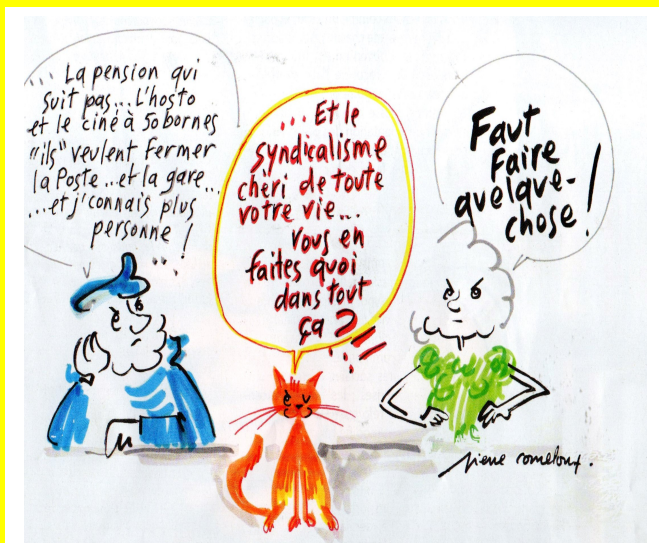 ... La pension qui
suit pas... L'hosto
et le ciné à 50 bornes
"ils" veulent fermer
la Poste... et la gare...
... et j'connais plus
personne !
... Et le
syndicalisme
chéri de toute
votre vie...
Vous en
faites quoi
dans tout
ça ?
Faut
Faire
quelque-
chose !